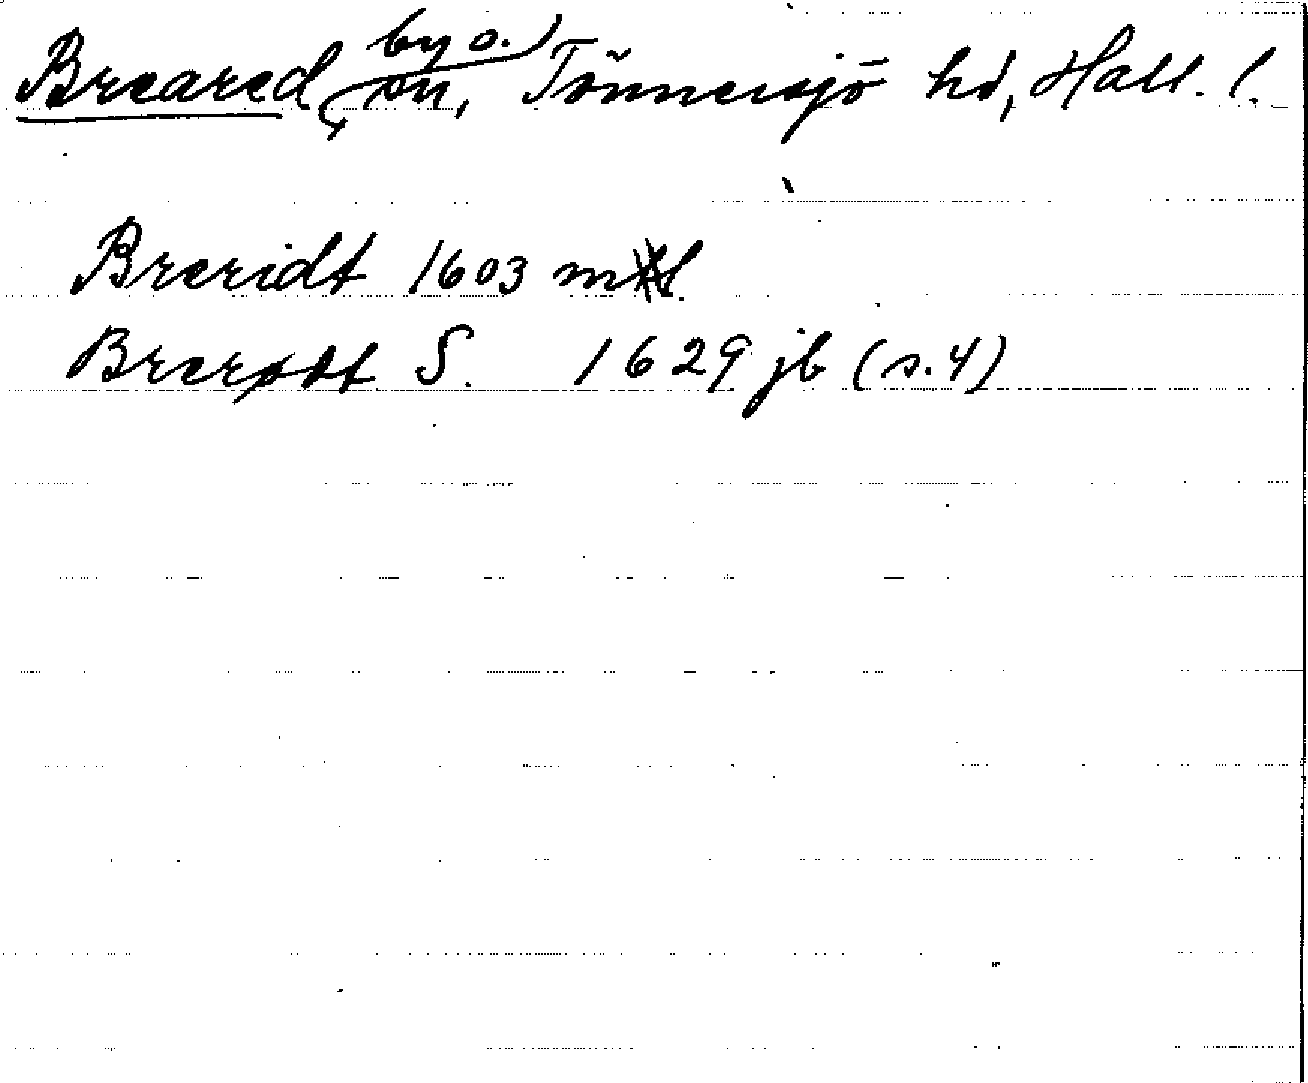 Breared, by o. sn, Tönnersjö hd, Hall. l.
Breridt 1603 mtl.
Brerødt S. 1629 jb (s. 4)